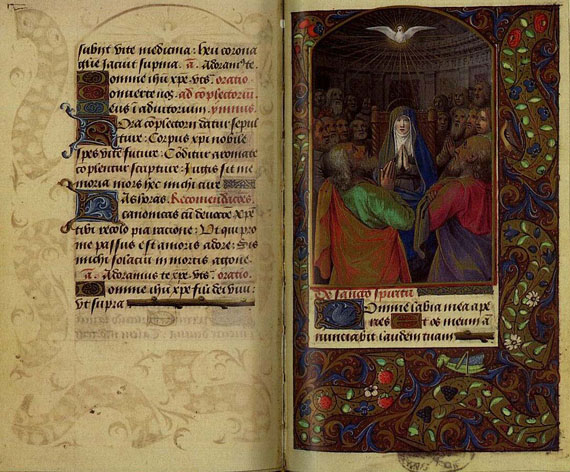 subnt vite medicina: heu corona
glie iacuit supina. a. Adoram9 te
Domine ihu xpe. vts. oratio.
Converte nos. ad cōpletoriū.
Deus ī adiutorium. ymnus.
Hora cōpletorii datur sepul
ture: Corpus xpi nobile
spes vite future: Cōditur aromate
cōplentur scripture: Iugis sit me
moria mors hec michi cure
Has horas. Recomēdacōes.
canonicas cū devoce xpē
tibi recolo pia ratione: Vt qui pro
me passus est amoris ardore: Sis
michi solaciū in mortis agone.
a. Adoramus te xpe. vts. oratio.
Domine ihu xpe fili dei viui:
vt supra.
De sancto spiritu
Domine labia mea ape
ries Et os meum ā
nunciabit laudem tuam